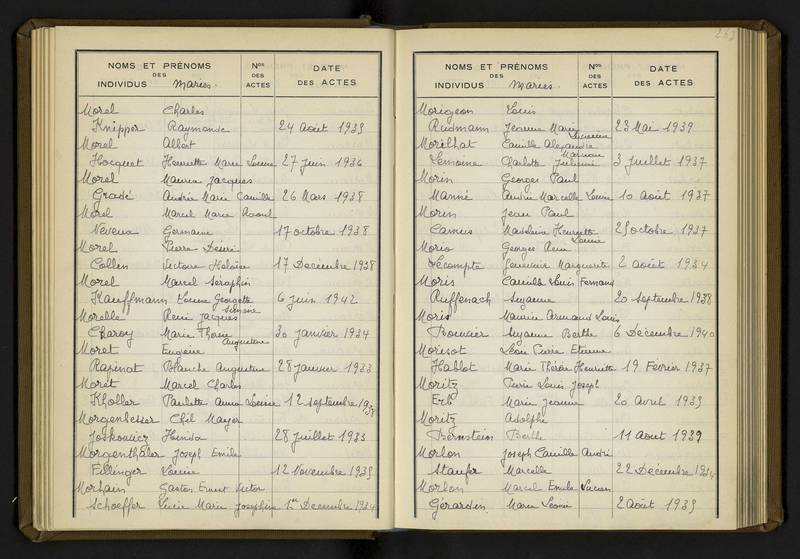 NOMS ET PRÉNOMS
DES
INDIVIDUS Mariés.
Nos
DES
ACTES
DATE
DES ACTES
Morel Charles
Knipper Raymonde 24 Août 1933
Morel Albert
Hocquet Henriette Marie Louise 27 Juin 1936
Morel Maurice Jacques
Gradé Andrée Marie Camille 26 Mars 1938
Morel Marcel Marie Raoul
Neveux Germaine 17 octobre 1938
Morel Pierre Désiré
Collin Victoire Héloïse 17 Décembre 1938
Morel Marcel Séraphin
Kauffmann Louise Georgette 6 Juin 1942
Simone
Morelle René Jacques
Charoy Marie Thérèse 30 Janvier 1934
Augustine
Moret Eugène
Rapinat Blanche Augustine 28 Janvier 1933
Moret Marcel Charles
Kholler Paulette Anna Louise 12 septembre
Morgenbesser Chil Mayer
Joskowicz Hinda 28 Juillet 1933
Morgenthaler Joseph Emile
Fillinger Louise 12 Novembre 1935
Morhain Gaston Ernest Victor
Schoeffer Lucie Marie Joséphine 1er Décembre 1934
263
NOMS ET PRÉNOMS
DES
INDIVIDUS Mariés.
Nos
DES
ACTES
DATE
DES ACTES
Morigeon Louis
Rudmann Jeanne Marie 23 Mai 1939
Lucienne
Morilhat Camille Alexandre
Lemoine Charlotte Julienne 3 Juillet 1937
Morin Georges Paul
Manné Andrée Marcelle Louise 10 Août 1937
Morin Jean Paul
Camus Madeleine Henriette 25 octobre 1937
Louise
Morio Georges René
Lecompte Geneviève Marguerite 2 Août 1934
Moris Camille Louis Fernand
Ruffenach Suzanne 20 septembre 1938
Moris Maurice Armand Louis
Bouvier Suzanne Berthe 6 Décembre 1940
Morisot Léon Pierre Etienne
Hablot Marie Thérèse Henriette 19 Février 1937
Moritz Pierre Louis Joseph
Erb Marie Jeanne 20 Avril 1933
Moritz Adolphe
Bernstein Berthe 11 Août 1939
Morlon Joseph Camille André
Staufer Marcelle 22 Décembre 1934
Morlon Marcel Emile Lucien
Gérardin Marie Léonie 2 Août 1933